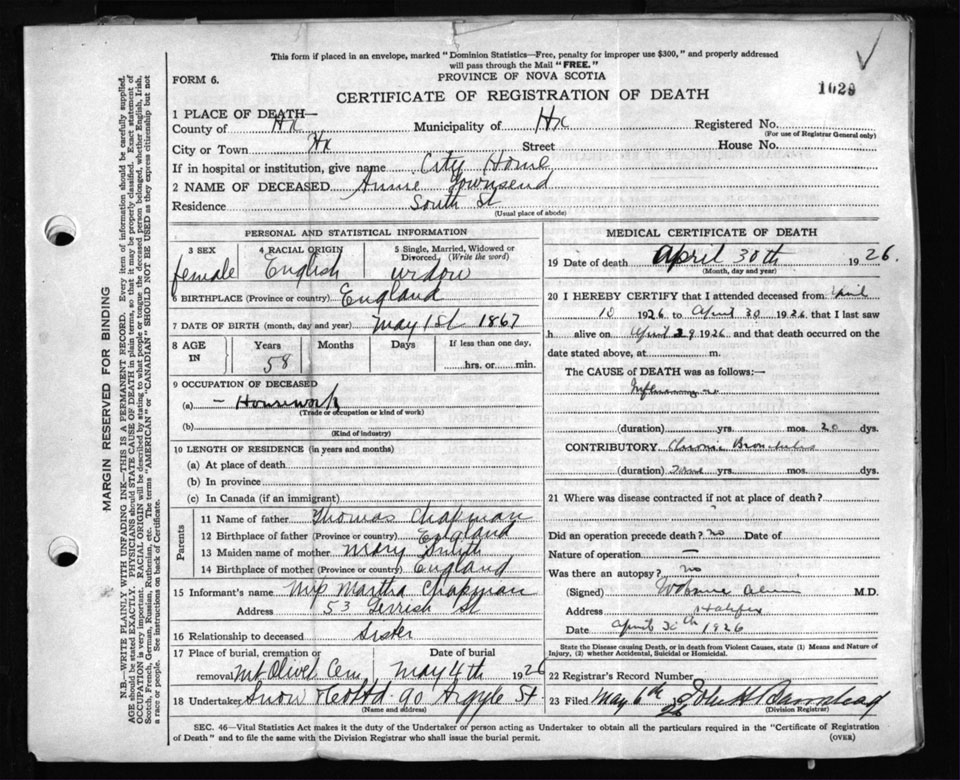 This form if placed in an envelope, marked "Dominion Statistics—Free, penalty for improper use $300," and properly addressed
will pass through the Mail "FREE."
FORM 6.
PROVINCE OF NOVA SCOTIA
1029
CERTIFICATE OF REGISTRATION OF DEATH
1 PLACE OF DEATH—
County of Hx Municipality of Hx Registered No.
(For use of Registrar General only)
City or Town Hx Street House No.
If in hospital or institution, give name City Home
2 NAME OF DECEASED Annie Townsend
Residence South St
(Usual place of abode)
PERSONAL AND STATISTICAL INFORMATION
3 SEX 4 RACIAL ORIGIN 5 Single, Married, Widowed or
Divorced, (Write the word)
female English widow
6 BIRTHPLACE (Province or country) England
7 DATE OF BIRTH (month, day and year) May 1st 1867
8 AGE IN Years Months Days If less than one day,
58 hrs. or min.
9 OCCUPATION OF DECEASED
(a) — Housework
(Trade or occupation or kind of work)
(b)
(Kind of industry)
10 LENGTH OF RESIDENCE (in years and months)
(a) At place of death
(b) In province
(c) In Canada (if an immigrant)
Parents
11 Name of father Thomas Chapman
12 Birthplace of father (Province or country) England
13 Maiden name of mother Mary Smith
14 Birthplace of mother (Province or country) England
15 Informant's name Mrs Martha Chapman
Address 53 Gerrish St
16 Relationship to deceased Sister
17 Place of burial, cremation or Date of burial
removal Mt Olivet Cem May 4th 1926
18 Undertaker Snow & Co Ltd 90 Argyle St
(Name and address)
MEDICAL CERTIFICATE OF DEATH
19 Date of death April 30th 1926.
(Month, day and year)
20 I HEREBY CERTIFY that I attended deceased from April
10 1926 to April 30 1926 that I last saw
h alive on April 29 1926 and that death occurred on the
date stated above, at m.
The CAUSE of DEATH was as follows:—
(duration) yrs. mos. 20 dys.
CONTRIBUTORY Chronic Bronchitis
(duration) Some yrs. mos. dys.
21 Where was disease contracted if not at place of death?
Did an operation precede death? no Date of
Nature of operation —
Was there an autopsy? no
(Signed) M.D.
Address Halifax
Date April 30th 1926
State the Disease causing Death, or in death from Violent Causes, state (1) Means and Nature of
Injury, (2) whether Accidental, Suicidal or Homicidal.
22 Registrar's Record Number
23 Filed May 6th 26 John H Barnstead
(Division Registrar)
SEC. 46—Vital Statistics Act makes it the duty of the Undertaker or person acting as Undertaker to obtain all the particulars required in the "Certificate of Registration
of Death" and to file the same with the Division Registrar who shall issue the burial permit.
(OVER)
MARGIN RESERVED FOR BINDING
N.B.—WRITE PLAINLY WITH UNFADING INK—THIS IS A PERMANENT RECORD. Every item of information should be carefully supplied.
AGE should be stated EXACTLY. PHYSICIANS should STATE CAUSE OF DEATH in plain terms, so that it may be properly classified. Exact statement of
OCCUPATION is very important. RACIAL ORIGIN will be described by stating to what people or tongue the deceased person belonged, whether English, Irish,
Scotch, French, German, Russian, Ruthenian, etc. The terms "AMERICAN" or "CANADIAN" SHOULD NOT BE USED as they express citizenship but not
a race or people. See instructions on back of Certificate.